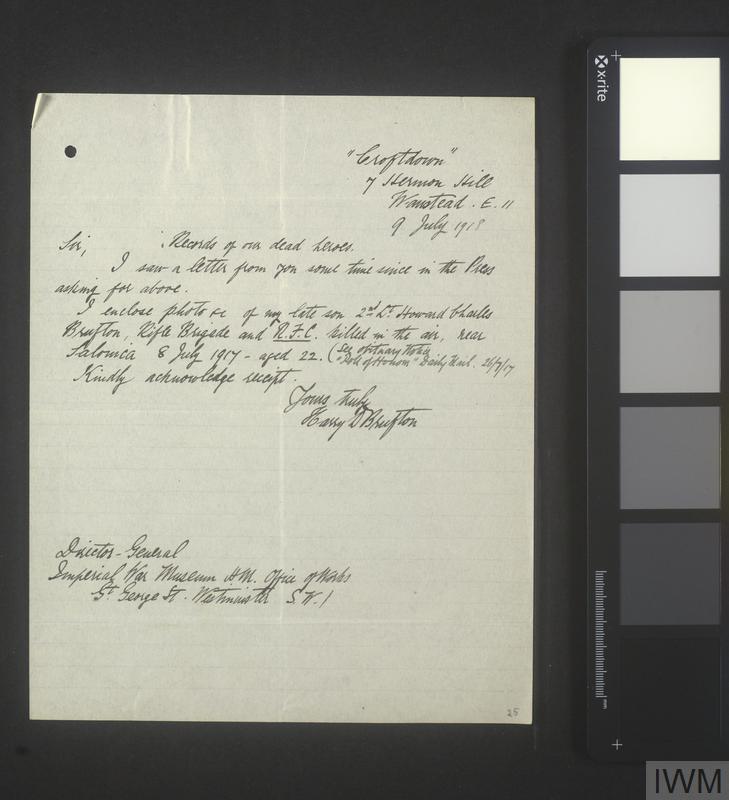 "Croftdown"
7 Hermon Hill
Wanstead. E. 11
9 July 1918
Sir, Records of our dead heroes.
I saw a letter from you some time since in the Press
asking for above.
I enclose photo &c of my late son 2nd Lt Howard Charles
Brufton, Rifle Brigade and R.F.C. killed in the air, near
Salonica 8 July 1917 - aged 22. (See obituary Notice
"Roll of Honour" Daily Mail. 26/7/17
Kindly acknowledge receipt.
Yours truly
Harry D Brufton
Director-General
Imperial War Museum H.M. Office of Works
St. George St. Westminster S.W.1
25
x-rite
mm
IWM